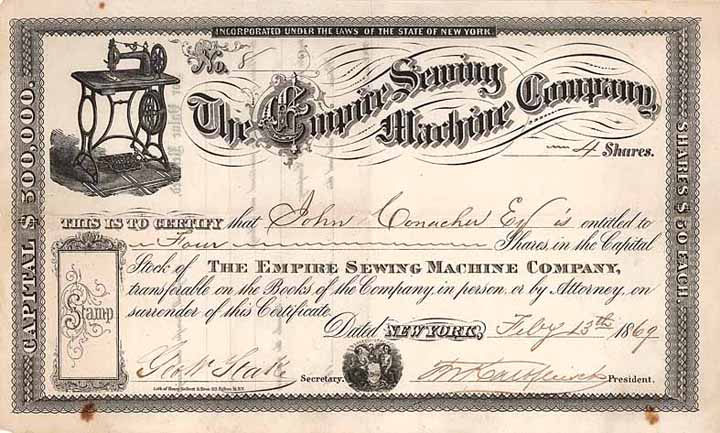 INCORPORATED UNDER THE LAWS OF THE STATE OF NEW YORK
No. 8
The Empire Sewing Machine Company
4 Shares.
CAPITAL $ 500,000.
SHARES $ 50 EACH.
THIS IS TO CERTIFY that John Conacher is entitled to
Four Shares in the Capital
Stock of THE EMPIRE SEWING MACHINE COMPANY,
transferable on the Books of the Company, in person or by Attorney, on
surrender of this Certificate.
Stamp
Dated NEW YORK, Feby 13th 1869
Secretary. President.